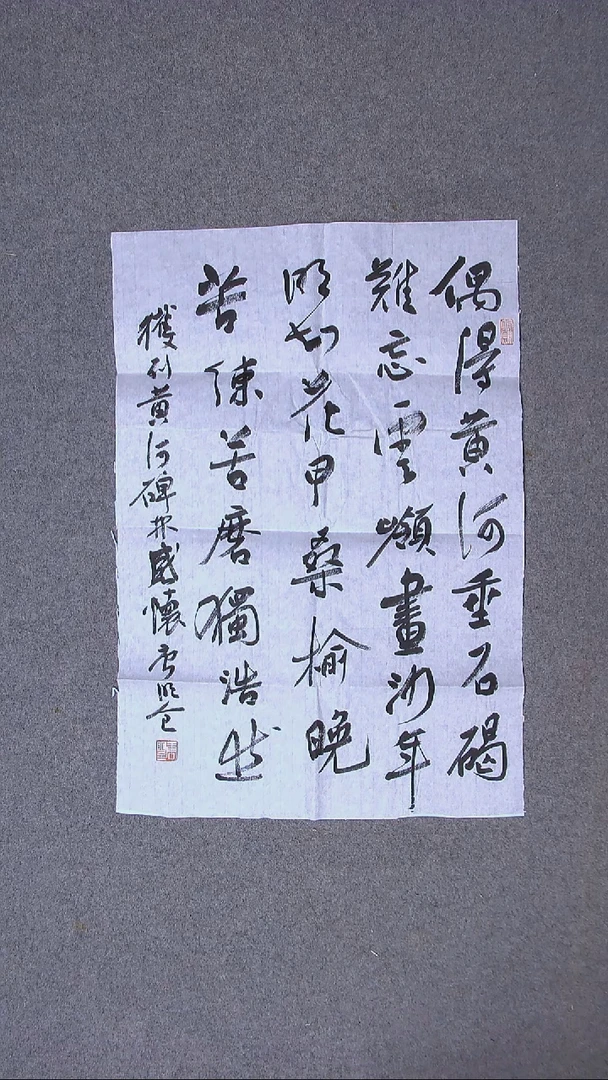 偶得黄河垂石碣
難忘雲巔畫沙年
明知花甲桑榆晚
苦練苦磨獨浩然
獲刊黄河碑林感懷